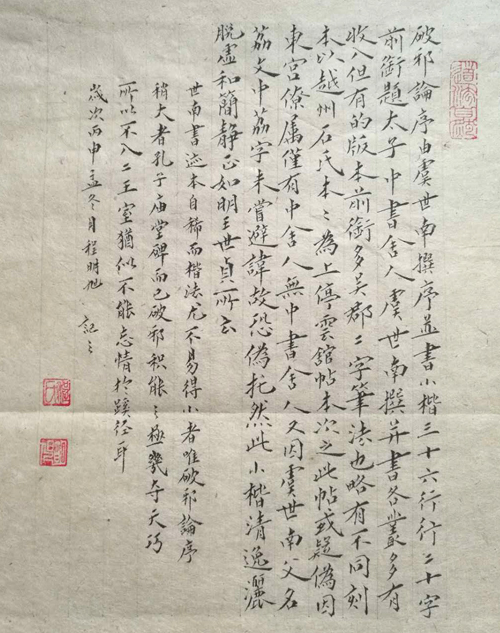 破邪論序由虞世南撰序並書小楷三十六行行二十字
前銜題太子中書舍人虞世南撰并書各叢多有
收入但有的版本前銜多吴郡二字筆法也略有不同刻
本以越州石氏本〻為上停雲舘帖本次之此帖或疑偽因
東宮僚属僅有中舍人無中書舍人又因虞世南父名
荔文中荔字未嘗避諱故恐偽托然此小楷清逸灑
脱虚和簡静正如明王世貞所云
世南書迹本自稀而楷法尤不易得小者唯破邪論序
稍大者孔子庙堂碑而已破邪积能〻極幾夺天巧
所以不入二王室猶似不能忘情於蹊径耳
歲次丙申孟冬月程明旭 記之